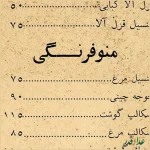 رل الا کبابی ۵۰
سیل قزل آلا
منوفرنگی
سیل مرغ ۷۵
وجه چینی ۹۰
کالپ گوشت ۱۱۵
کالپ مرغ ۸۵